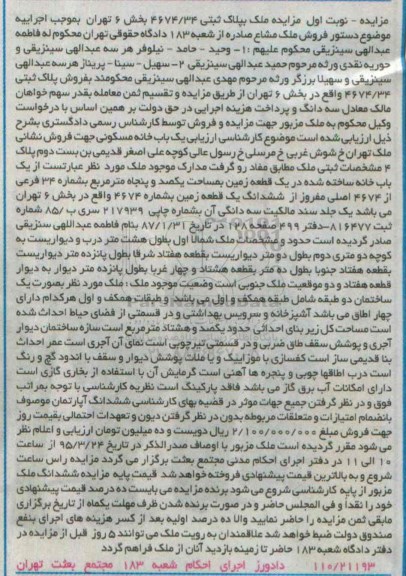 مزایده - نوبت اول مزایده ملک بپلاک ثبتی ۴۶۷۴/۳۴ بخش ۶ تهران بموجب اجراییه
موضوع دستور فروش ملک مشاع صادره از شعبه ۱۸۳ دادگاه حقوقی تهران محکوم له فاطمه
عبدالهی سینزیقی محکوم علیهم : ۱- وحید - حامد - نیلوفر هر سه عبدالهی سینزیقی و
حوریه نقدی ورثه مرحوم حمید عبدالهی سینزیقی ۲- سهیل - سینا - پریناز هر سه عبدالهی
سینزیقی و سهیلا برزگر ورثه مرحوم مهدی عبدالهی سینزیقی محکومند بفروش پلاک ثبتی
۴۶۷۴/۳۴ واقع در بخش ۶ تهران از طریق مزایده و تقسیم ثمن معامله بقدر سهم خواهان
مالک معادل سه دانگ و پرداخت هزینه اجرایی در حق دولت بر همین اساس با درخواست
وکیل محکوم له ملک مزبور جهت مزایده و فروش توسط کارشناس رسمی دادگستری بشرح
ذیل ارزیابی شده است موضوع کارشناسی ارزیابی یک باب خانه مسکونی جهت فروش نشانی
ملک تهران خ شوش غربی خ مرسلی خ رسول عالی کوچه علی اصغر قدیمی بن بست دوم پلاک
۴ مشخصات ثبتی ملک مطابق مفاد رو گرفت مدارک موجود ملک مورد نظر عبارتست از یک
باب خانه ساخته شده در یک قطعه زمین بمساحت یکصد و پنجاه مترمربع بشماره ۳۴ فرعی
از ۴۶۷۴ اصلی مفروز از ششدانگ یک قطعه زمین بشماره ۴۶۷۴ واقع در بخش ۶ تهران
می باشد یک جلد سند مالکیت سه دانگی آن بشماره چاپی ۲۱۷۹۳۹ سری ب /۸۵ شماره
ثبت ۸۱۶۴۷۷-دفتر ۴۹۹ صفحه ۱۲۸ در تاریخ ۸۷/۱/۳۱ بنام فاطمه عبداللهی سنزیقی
صادر گردیده است حدود و مشخصات ملک شمالا اول بطول هشت متر درب و دیواریست به
کوچه دو متری دوم بطول دو متر دیواریست بقطعه هفتاد شرقا بطول پانزده متر دیواریست
بقطعه هفتاد جنوبا بطول ده متر بقطعه هشتاد و چهار غربا بطول پانزده متر دیوار به دیوار
قطعه هفتاد و دو موقعیت ملک جنوبی است وضعیت موجود ملک : ملک مورد نظر بصورت یک
ساختمان دو طبقه شامل طبقه همکف و اول می باشد و طبقات همکف و اول هرکدام دارای
چهار اطاق می باشد آشپزخانه و سرویس بهداشتی و در قسمتی از فضای حیاط احداث شده
است مساحت کل زیر بنای احداثی حدود یکصد و هشتاد متر مربع است سازه ساختمان دیوار
آجری و پوشش سقف طاق ضربی و در قسمتی تیرچوبی است نمای آن آجری است عمر احداث
بنا قدیمی ساز است کفسازی با موزاییک و یا ملات پوشش دیوار و سقف با اندود گچ و رنگ
است درب اطاقها چوبی و پنجره ها آهنی است گرمایش آن با استفاده از بخاری گازی است
دارای امکانات آب برق گاز می باشد فاقد پارکینگ است نظریه کارشناسی با توجه بمراتب
فوق و در نظر گرفتن جمیع جهات موثر در قضیه بهای کارشناسی ششدانگ آپارتمان موصوف
بانضمام امتیازات و متعلقات مربوطه بدون در نظر گرفتن دیون و تعهدات احتمالی بقیمت روز
جهت فروش مبلغ ۲/۱۰۰/۰۰۰/۰۰۰ ریال دویست و ده میلیون تومان ارزیابی و اعلام نظر
می شود مقرر گردیده است ملک مزبور با اوصاف صدرالذکر در تاریخ ۹۵/۳/۲۴ از ساعت
۱۰ الی ۱۱ در دفتر اجرای احکام مدنی مجتمع بعثت برگزار می گردد مزایده راس ساعت
شروع و به بالاترین قیمت پیشنهادی فروخته خواهد شد قیمت پایه مزایده ششدانگ ملک
مزبور از پایه کارشناسی شروع می شود برنده مزایده می بایست ده درصد قیمت پیشنهادی
خود را نقدا و فی المجلس حاضر و در صورت برنده شدن ظرف مهلت یکماه از تاریخ برگزاری
مابقی ثمن مزایده را حاضر نمایید والا ده درصد اولیه بعد از کسر هزینه های اجرای بنفع
صندوق دولت ضبط خواهد شد علاقمندان به رویت ملک می توانند ۵ روز قبل از مزایده در
دفتر دادگاه شعبه ۱۸۳ حاضر تا زمینه بازدید آنان از ملک فراهم گردد
۱۱۰/۲۱۱۹۳ دادورز اجرای احکام شعبه ۱۸۳ مجتمع بعثت تهران